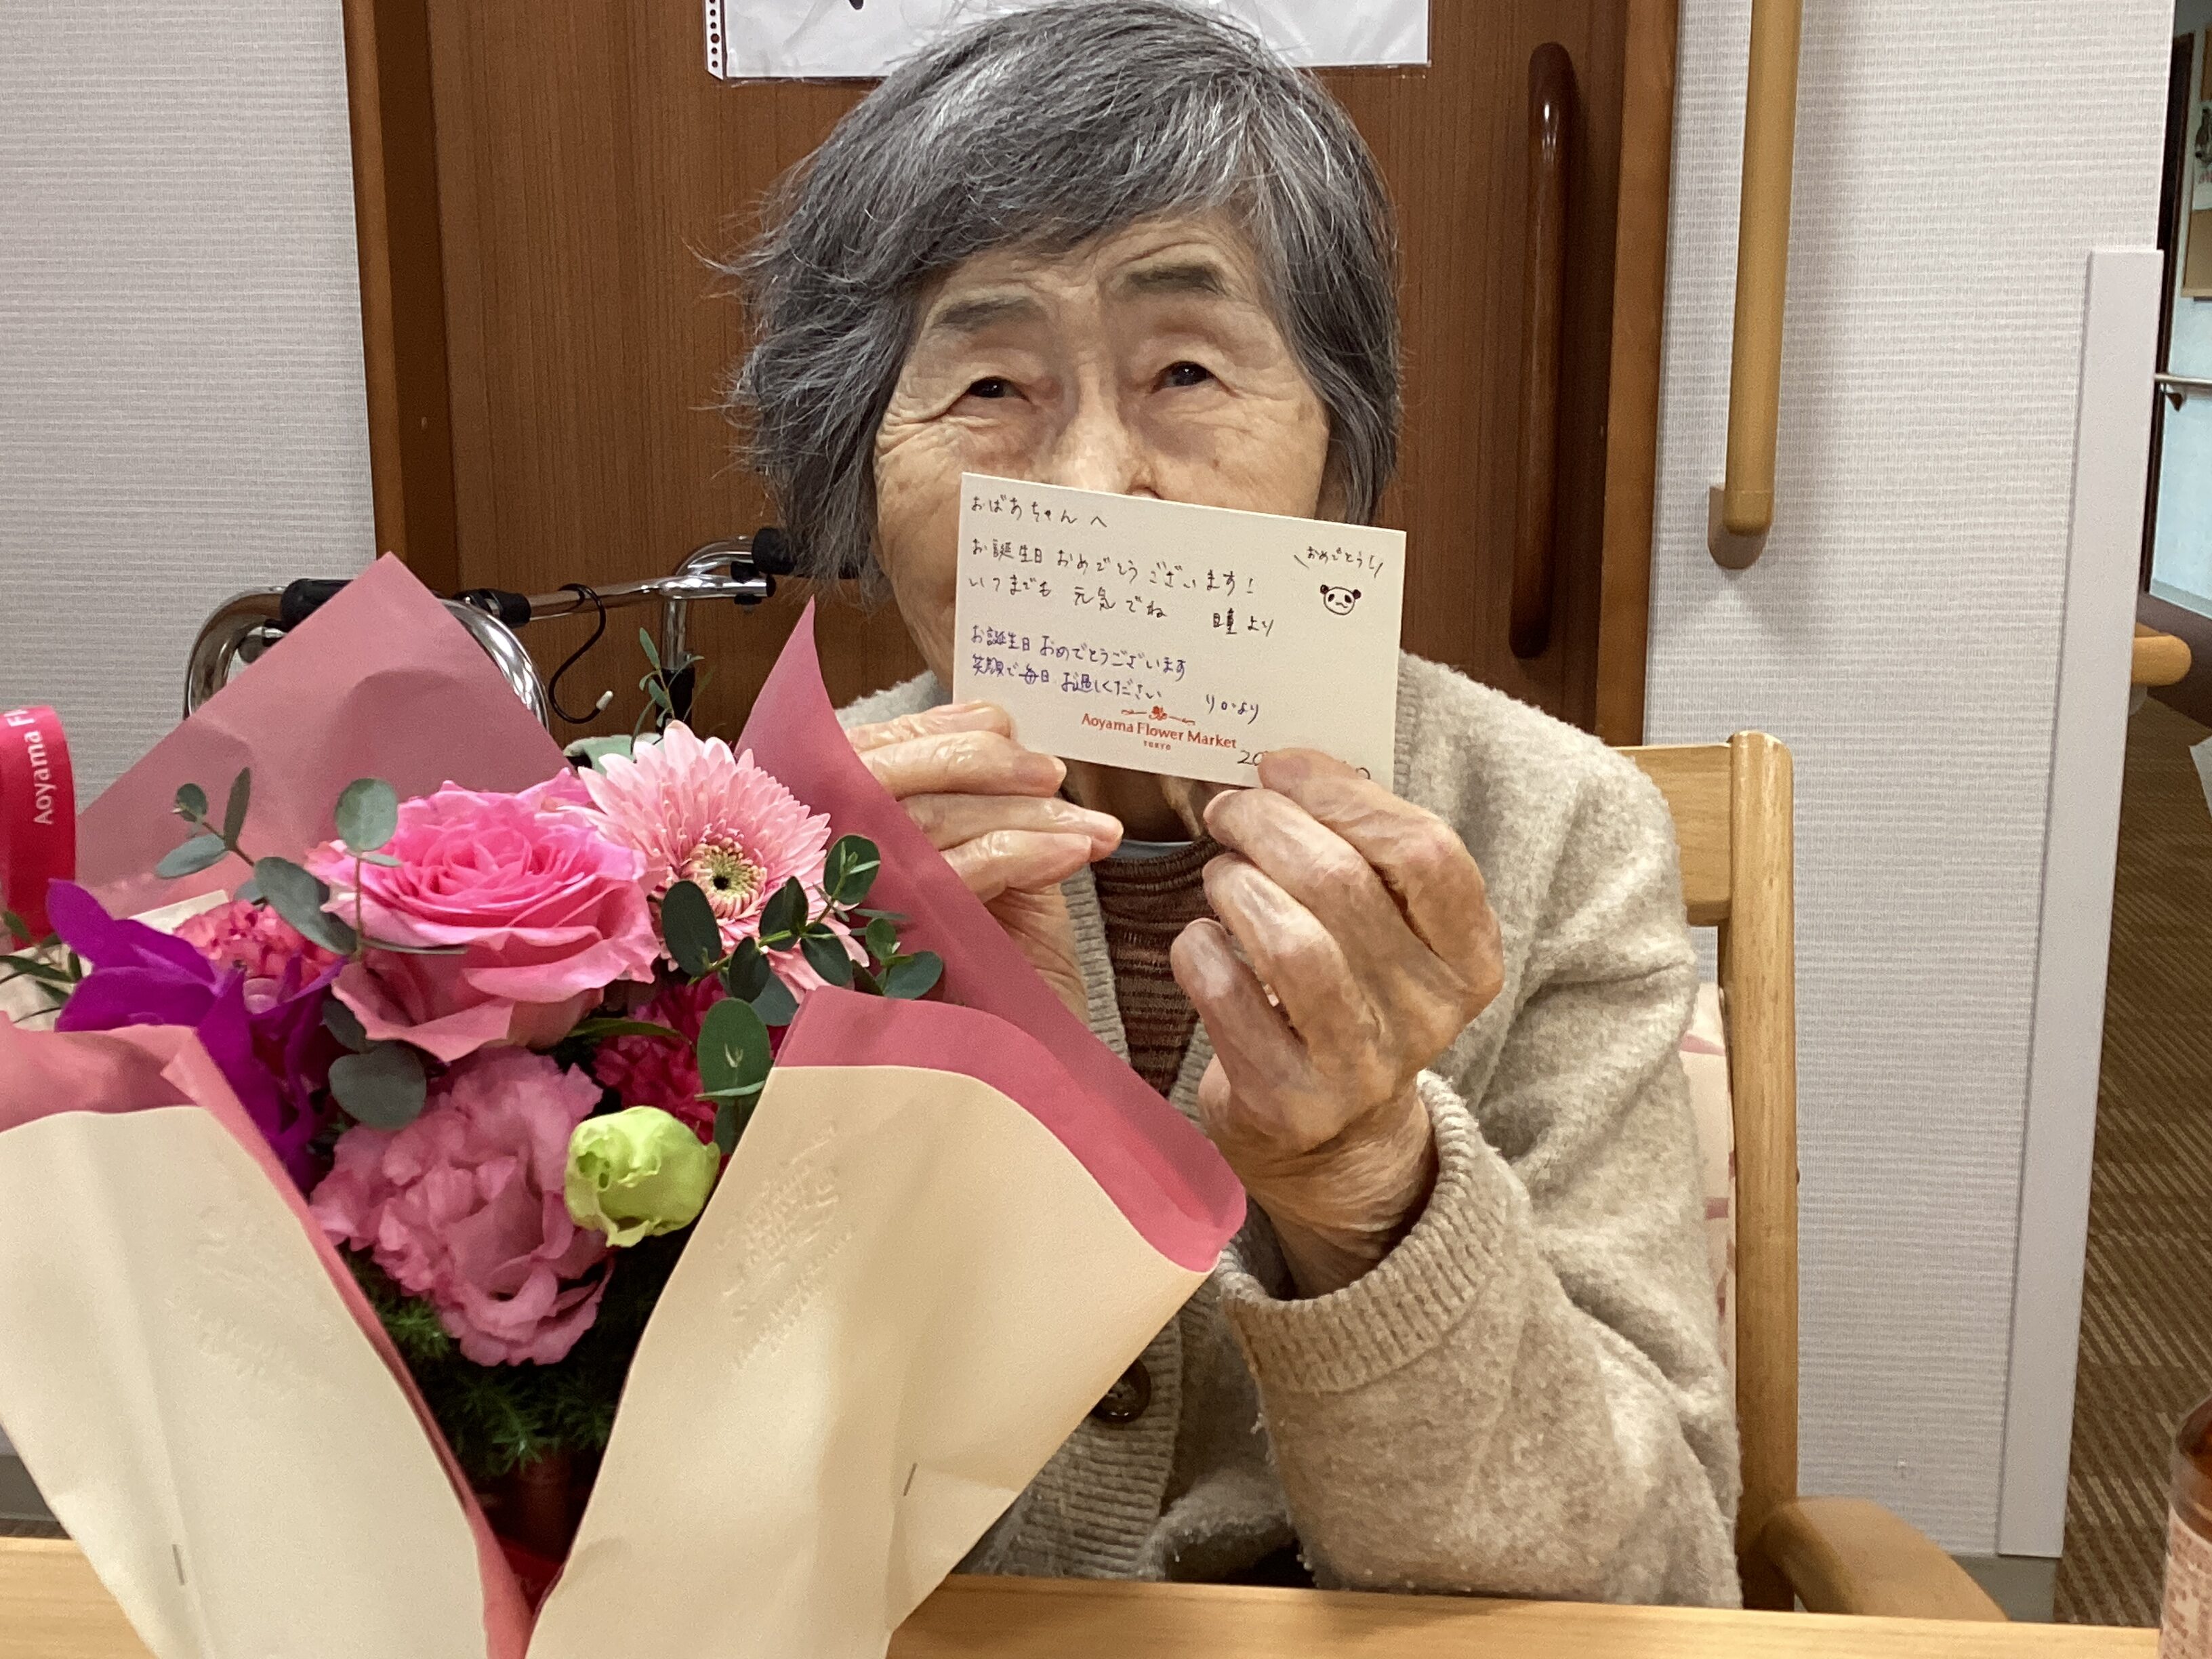 おばあちゃんへ
お誕生日おめでとうございます!
いつまでも 元気でね 瞳より
\おめでとう!/
お誕生日おめでとうございます
笑顔で毎日お過しください
りかより
Aoyama Flower Market
TOKYO
20
Aoyama Fl